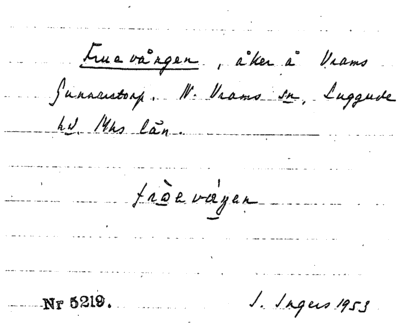 Fruevången, åker å Vrams
Gunnarstorp. N. Vrams sn, Luggude
hd. Mhs län.
Nr 5219. I. Ingers 1953